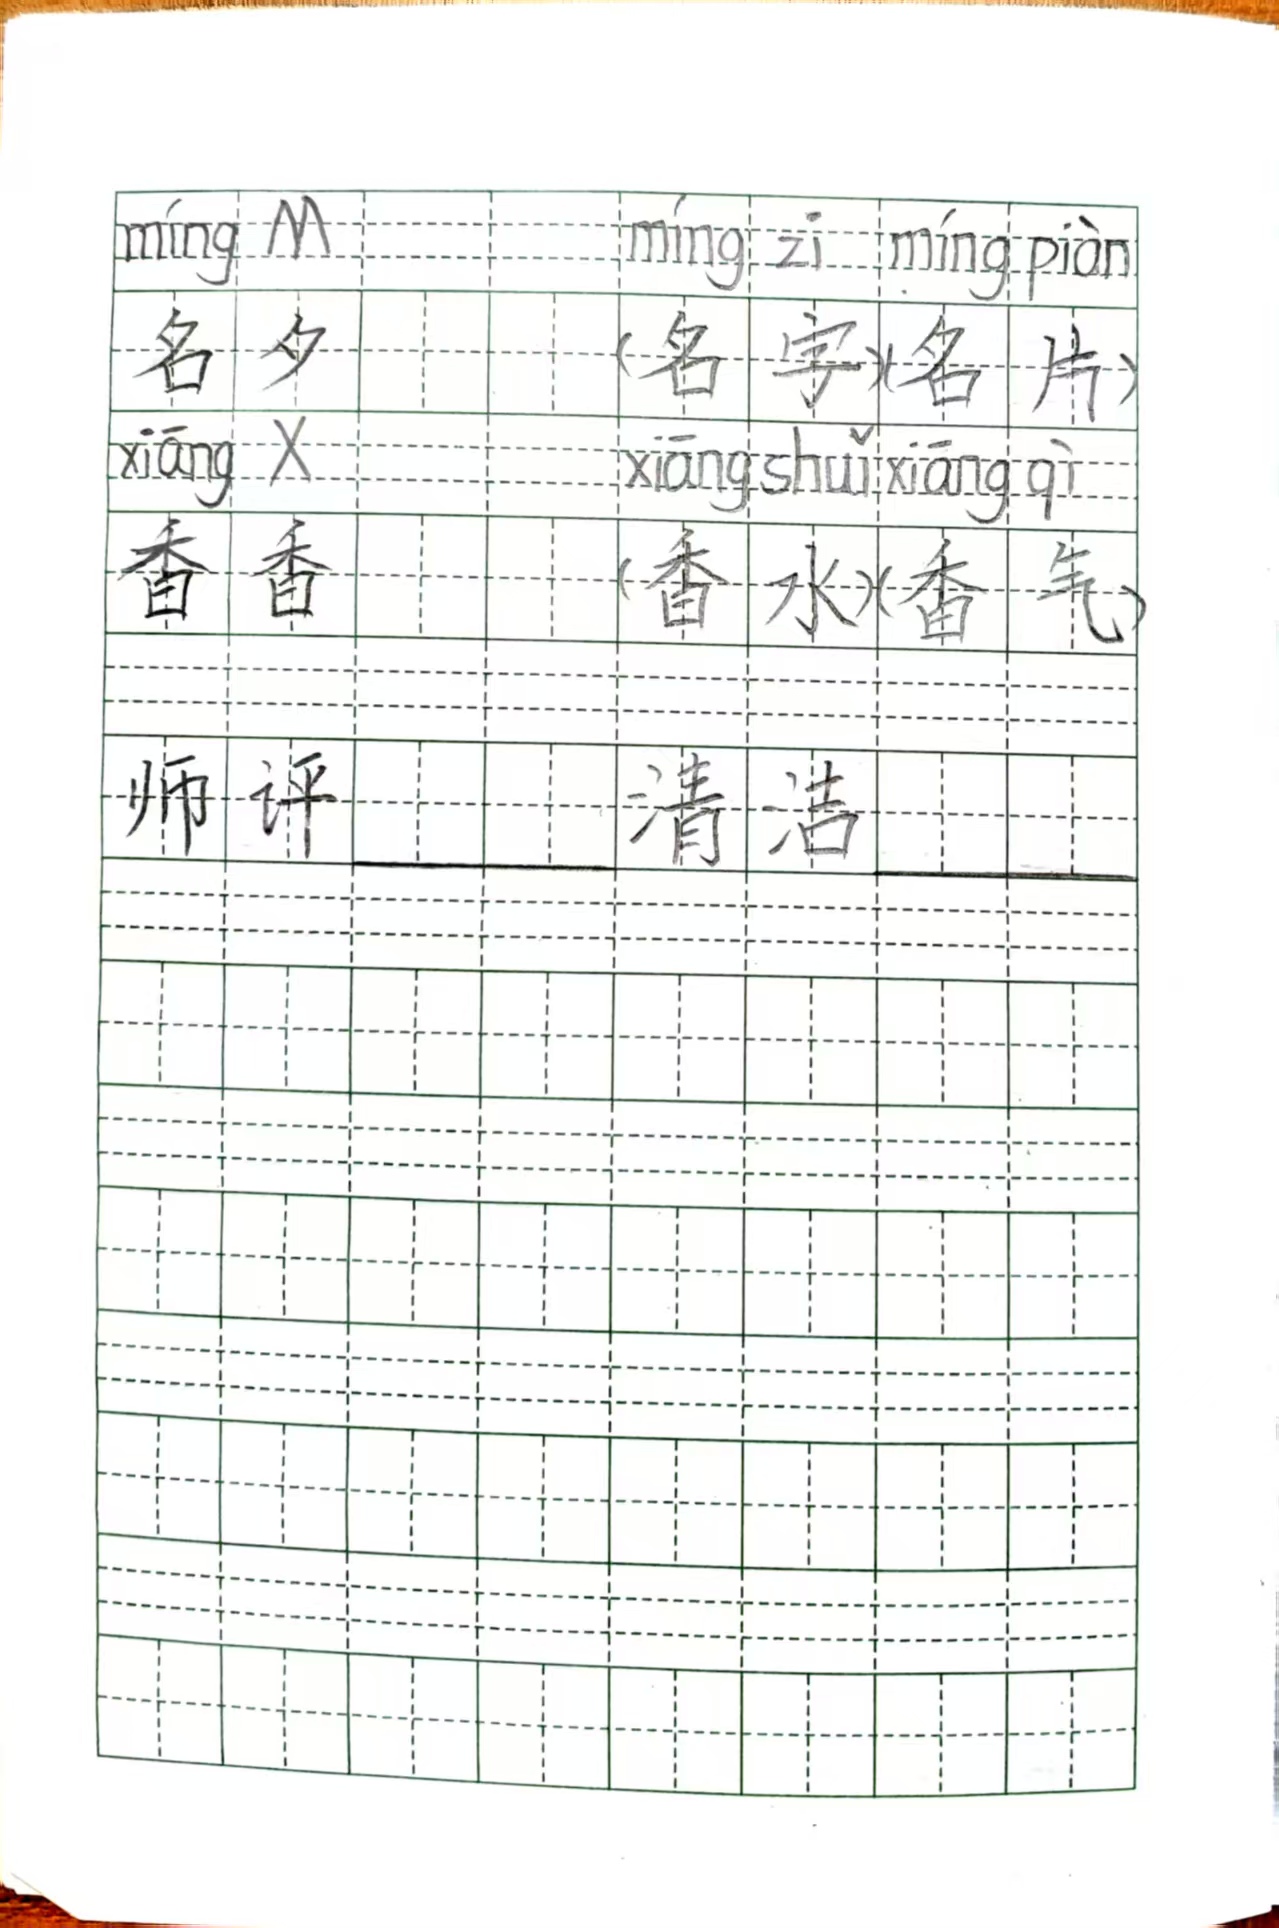 míng M míng zi míng piàn
名 夕 (名 字)(名 片)
xiāng X xiāng shuǐ xiāng qì
香 香 (香 水)(香 气)
师 评 清 洁